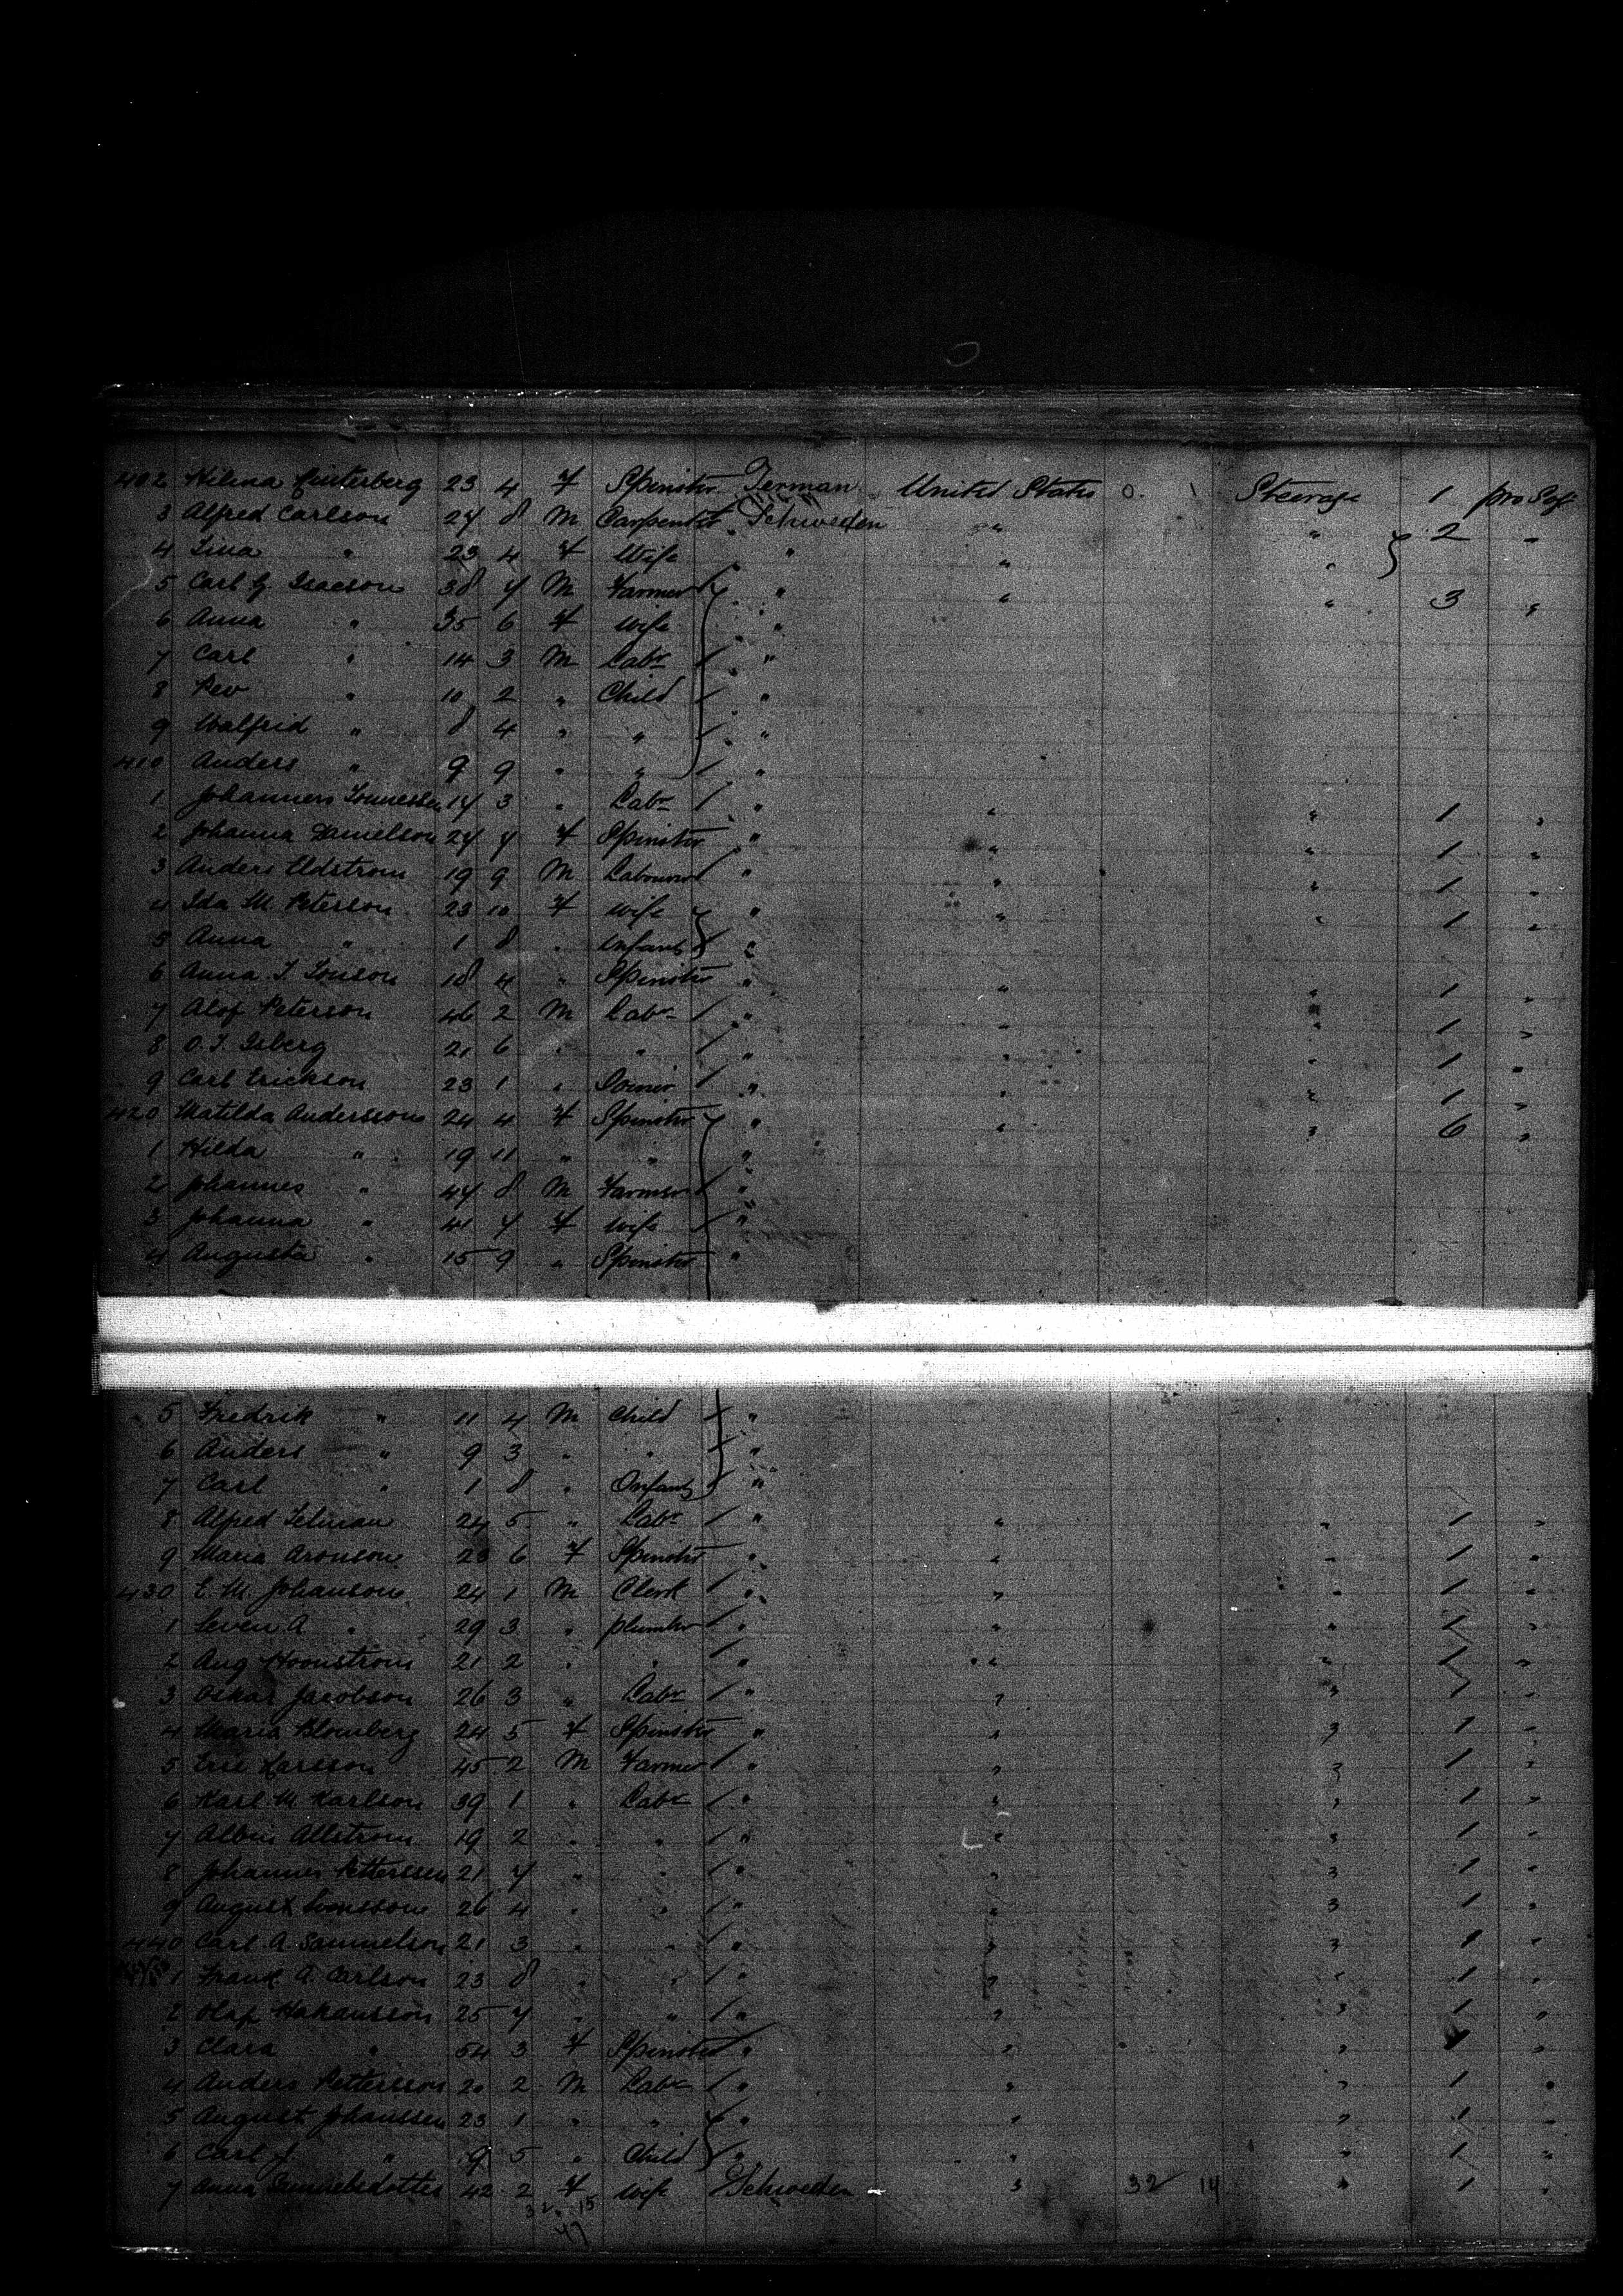 402 Hilena Quisterberg 23 4 F Spinster German United States 0. \ Steerage 1 pro Sof
3 Alfred Carlson 27 8 M Carpenter Schweden " " } 2 "
4 Lina " 23 4 F Wife " " "
5 Carl G. Isacson 38 7 M Farmer / " " " 3 "
6 Anna " 35 6 F Wife "
7 Carl " 14 3 M Labr / "
8 " 10 2 " Child / "
9 Walfrid " 8 4 " " / "
410 Anders " 9 9 " " / "
1 Johannes 17 3 " Labr / " " " 1 "
2 Johanna Danielson 27 7 F Spinster " " " 1 "
3 Anders Eldstrom 19 9 M Labourer / " " " 1 "
4 Ida M. Peterson 23 10 F Wife } " " " 1 "
5 Anna " 1 8 " Infant "
6 Anna 18 4 " Spinster " " " 1 "
7 Alof Peterson 46 2 M Labr / " " " 1 "
8 O. J. Isberg 21 6 " " / " " " 1 "
9 Carl Erickson 23 1 " Joiner / " " " 1 "
420 Matilda Andersson 24 4 F Spinster " " " 6 "
1 Hilda " 19 11 " " "
2 Johannes " 47 8 M Farmer / "
3 Johanna " 41 7 F Wife / "
4 Augusta " 15 9 " Spinster "
5 Fredrik " 11 4 M Child / "
6 Anders " 9 3 " " / "
7 Carl " 1 8 " Infant "
8 Alfred 24 5 " Labr / " " " 1 "
9 Maria Aronson 23 6 F Spinster " " " 1 "
430 E. M. Johanson 24 1 M Clerk / " " " 1 "
1 Seven A " 29 3 " plumber / " " " 1 "
2 Aug 21 2 " " / " " " 1 "
3 Oskar Jacobson 26 3 " Labr / " " " 1 "
4 Maria Blomberg 24 5 F Spinster " " " 1 "
5 Eric Karlson 45 2 M Farmer / " " " 1 "
6 Karl M. Karlson 39 1 " Labr / " " " 1 "
7 Albin Allstrom 19 2 " " / " " " 1 "
8 Johannes Petterssen 21 7 " " / " " " 1 "
9 August 26 4 " " / " " " 1 "
440 Carl A. Samuelson 21 3 " " / " " " 1 "
1 Frank A. Carlson 23 8 " " / " " " 1 "
2 Olaf Hakansson 25 7 " " / " " " 1 "
3 Clara " 54 3 F Spinster " " " 1 "
4 Anders Petterson 20 2 M Labr / " " " 1 "
5 August Johanssen 23 1 " " " " " 1 "
6 Carl J. " 9 5 " Child " " " 1 "
7 Anna 42 2 F Wife Schweden " 32 14 " 1
32. 15
47